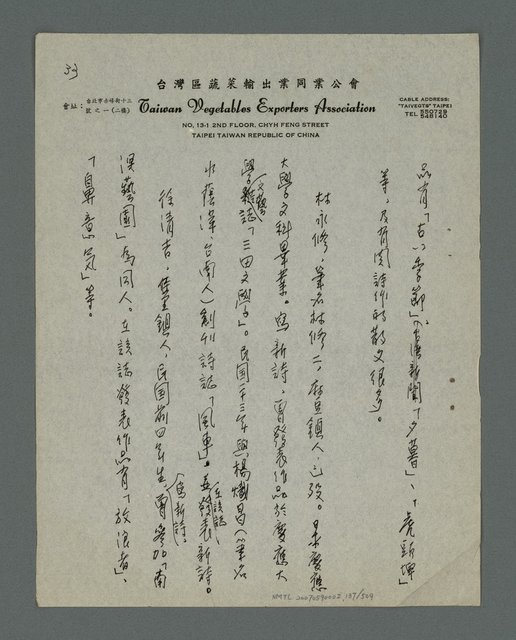 33
台灣區蔬菜輸出業同業公會
會址：台北市赤峰街十三號之一(二樓)
Taiwan Vegetables Exporters Association
NO, 13-1 2ND FLOOR, CHYH FENG STREET
TAIPEI TAIWAN REPUBLIC OF CHINA
CABLE ADDRESS:
"TAIVEGTS" TAIPEI
TEL 550728
548140
品有「古い季節」(台灣新聞「夕暮」、「虎頭埤」
等，及有関詩作的散文很多。
林永修，筆名林修二，麻豆鎮人，已歿。日本慶應
大學文科畢業。寫新詩，曾發表作品於慶應大
學文學雜誌「三田文學」。民国廿三年與楊熾昌(筆名
水蔭萍 台南人)創刊詩誌「風車」。並在該誌發表新詩。
徐清吉，佳里鎮人，民国前四年生，寫新詩。曾參加「南
溟藝園」為同人。在該誌發表作品有「放浪者」、
「鼻意気」等。
NMTL 20070590002, 137/509